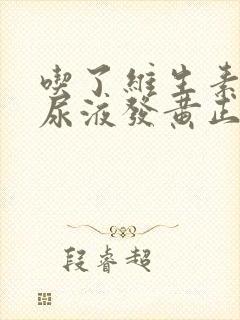 喫了維生素
尿液發黃正
段睿超